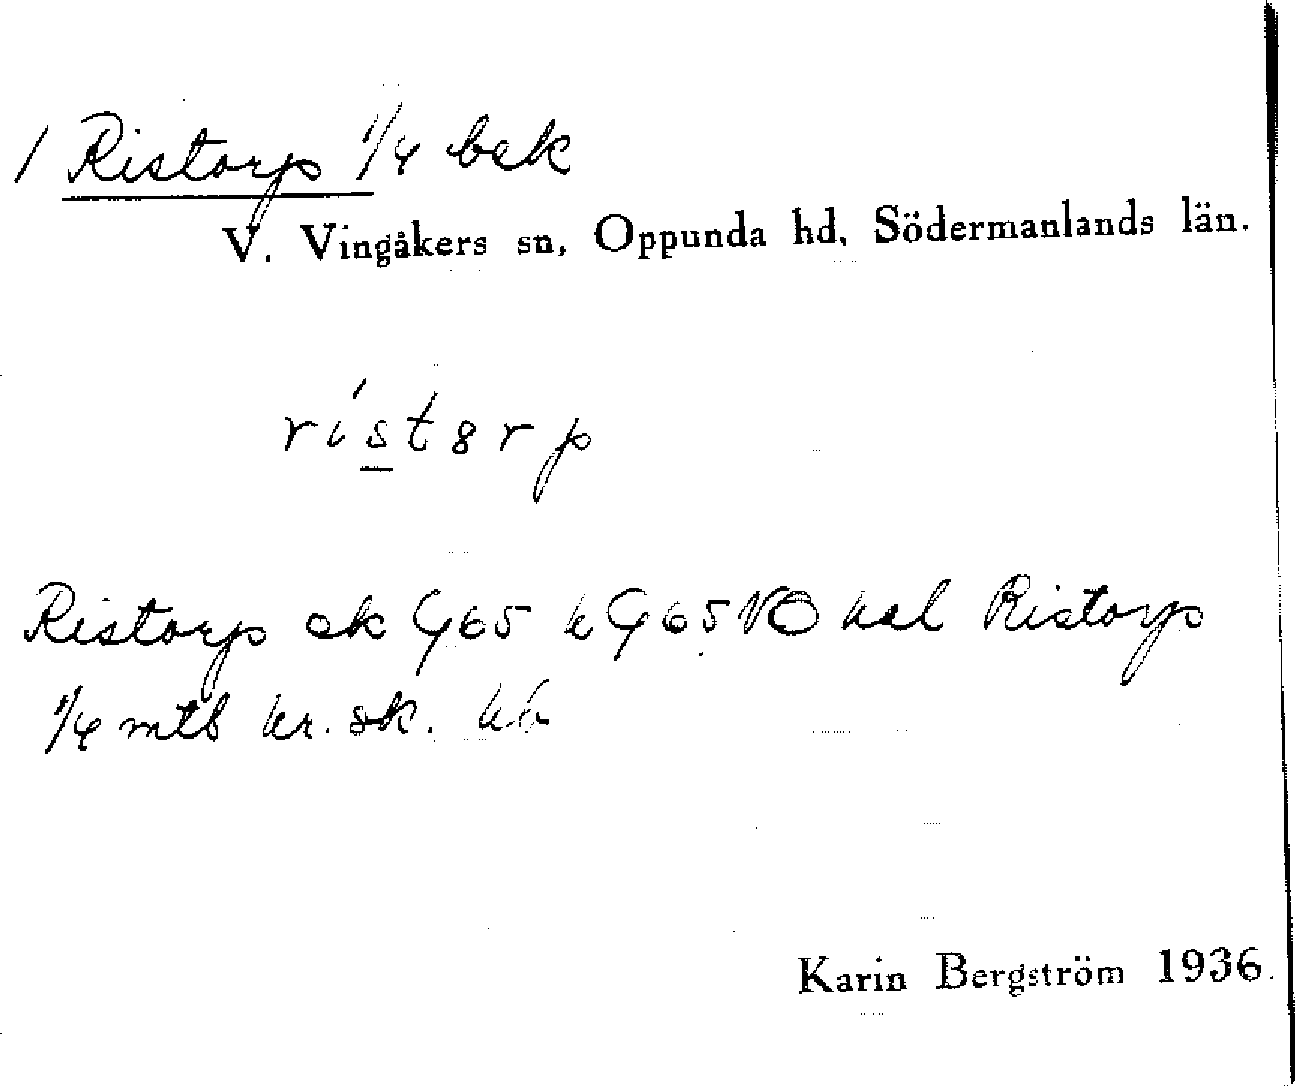 1 Ristorp 1/4 bek
V. Vingåkers sn, Oppunda hd, Södermanlands län.
rístɞrp
Ristorp ek G65 k G65 NO hsl Ristorp
1/4 mtl kr. sk.
Karin Bergström 1936.